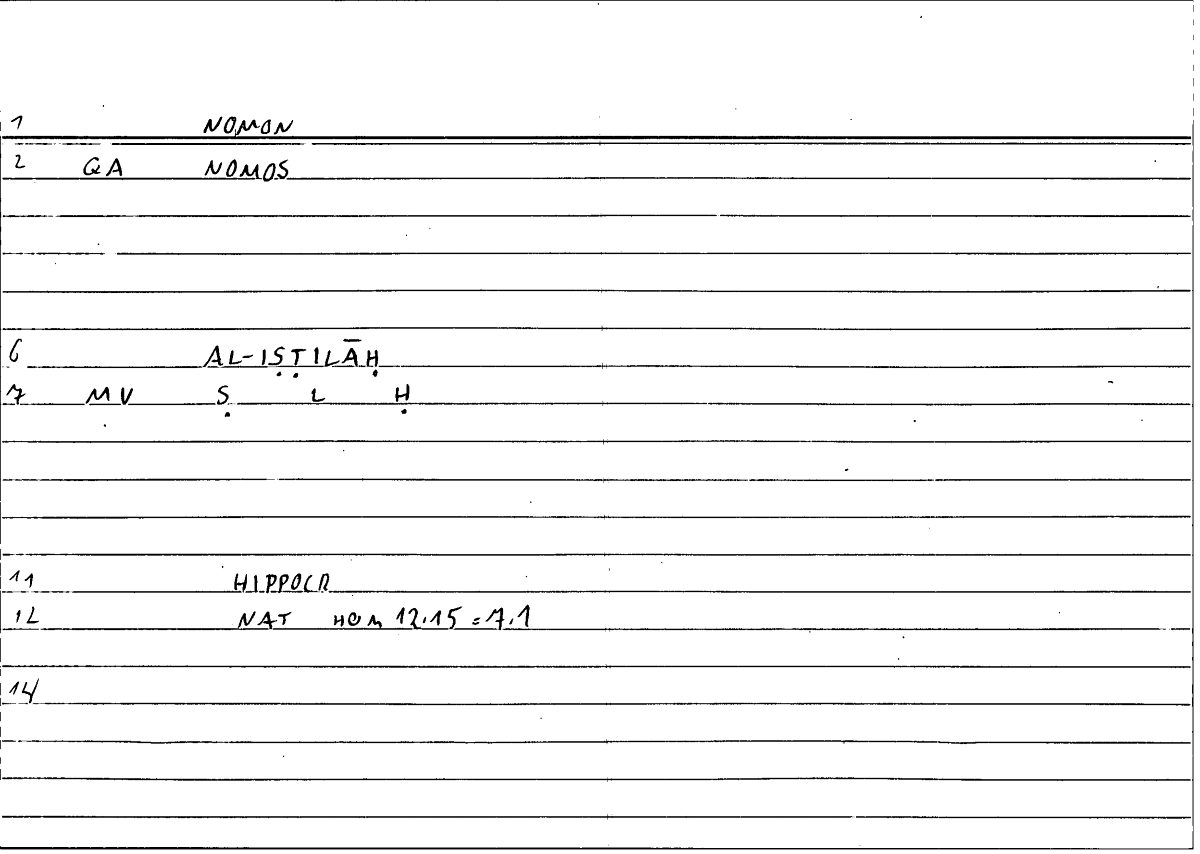 1 NOMON
2 GA NOMOS
6 AL-IṢṬILĀḤ
7 MV Ṣ L Ḥ
11 HIPPOCR
12 NAT HOM 12.15 = 7.1
14